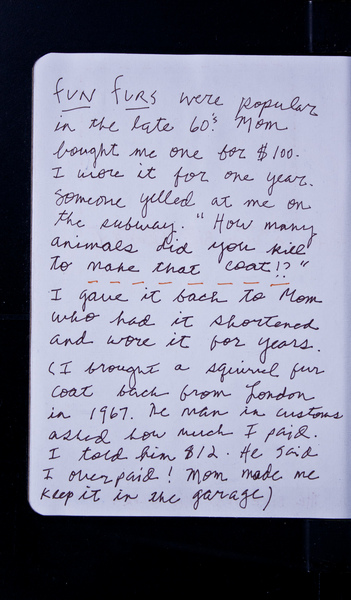 FUN FURS were popular
in the late 60's. Mom
bought me one for $100.
I wore it for one year.
Someone yelled at me on
the subway. "How many
animals did you kill
to make that coat!?"
I gave it back to Mom
who had it shortened
and wore it for years.
(I brought a squirrel fur
coat back from London
in 1967. The man in customs
asked how much I paid.
I told him $12. He said
I overpaid! Mom made me
keep it in the garage)